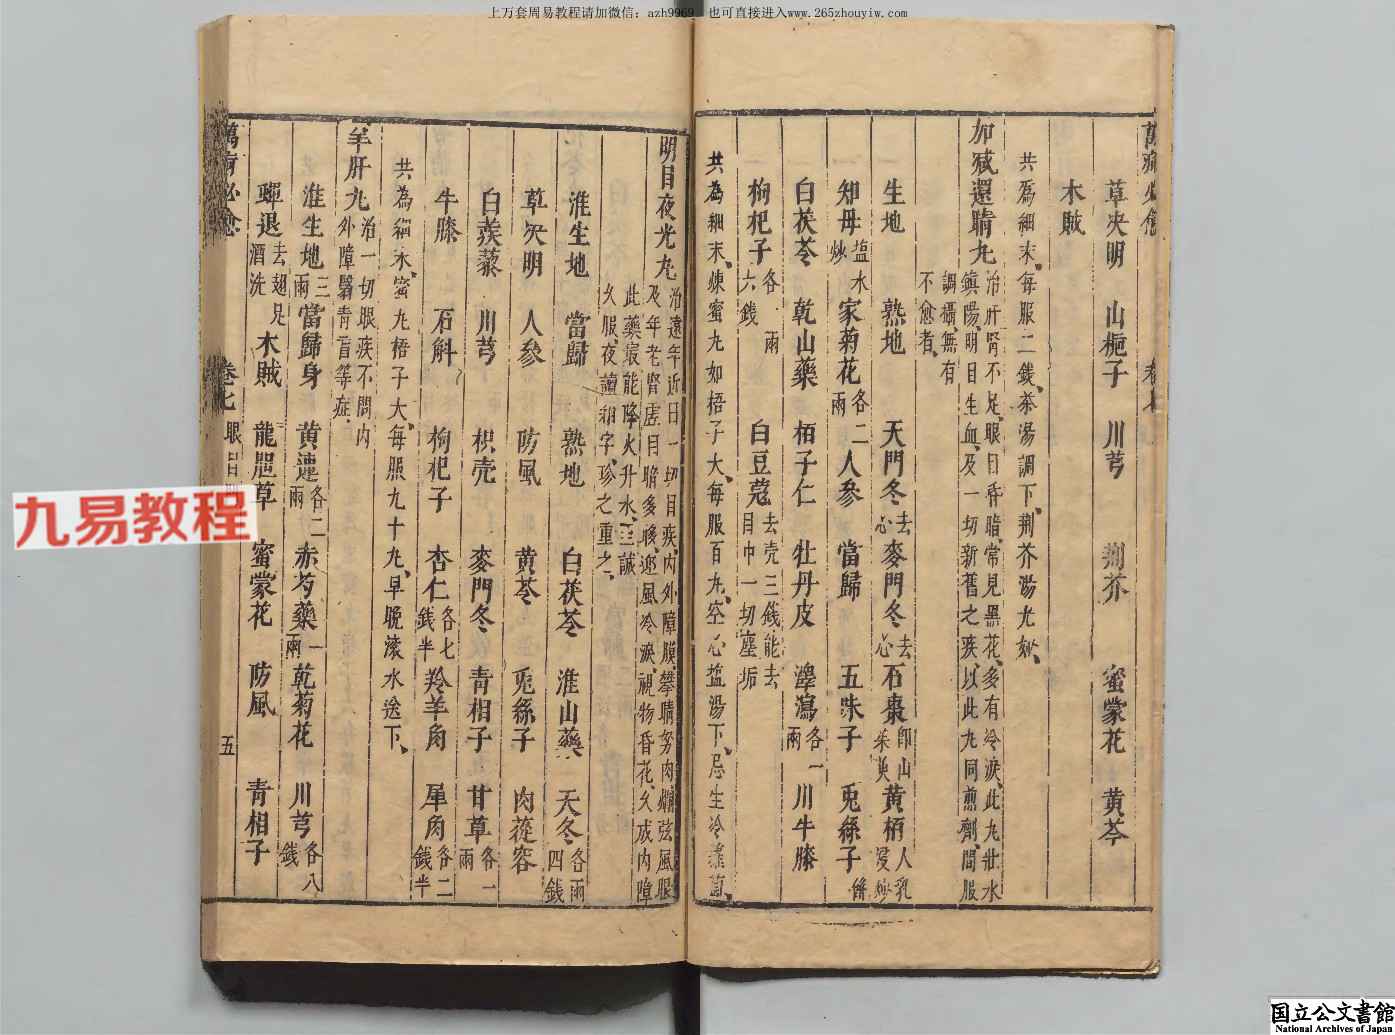 上万套周易教程请加微信：azh9969 也可直接进入www.265zhouyiw.com
草决明 山梔子 川芎 荆芥 蜜蒙花 黄芩
木賊
共爲細末、每服二錢、茶湯調下、荆芥湯尤妙、
加減還睛丸 治肝腎不足、眼目昏暗、常見黑花、多有冷淚、此九壯水
鎮陽、明目生血、及一切新舊之疾、以此九同煎劑、間服
調攝、無有
不愈者、
生地 熟地 天門冬 去心 麥門冬 去心 石棗 即山茱萸 黄栢 人乳浸炒
知母 塩水炒 家菊花 各二兩 人參 當歸 五味子 兎絲子 餅
白茯苓 乾山藥 栢子仁 牡丹皮 澤瀉 各一兩 川牛膝
枸杞子 各一兩六錢 白豆蔻 去壳三錢能去目中一切塵垢
共為細末、煉蜜丸如梧子大、每服百丸、空心塩湯下、忌生冷
明目夜光丸 治遠年近日一切目疾、内外障膜、攀睛努肉、爛弦風眼
及年老腎虚目暗多眵、迎風冷淚、視物昏花、久成内障
此藥最能降火升水、
久服、夜讀細字、珍之重之、
淮生地 當歸 熟地 白茯苓 淮山藥 天冬 各一兩四錢
草决明 人參 防風 黄芩 兎絲子 肉蓯容
白蒺藜 川芎 枳壳 麥門冬 青相子 甘草 各一兩
牛膝 石斛 枸杞子 杏仁 各七錢半 羚羊角 犀角 各二錢半
共為細末、蜜丸梧子大、每服九十丸、早晚滾水送下、
羊肝丸 治一切眼疾不問内
外障翳青盲等症
淮生地 三兩 當歸身 黄連 各二兩 赤芍藥 一兩 乾菊花 川芎 各八錢
蟬退 去翅足酒洗 木賊 龍胆草 蜜蒙花 防風 青相子
萬病必愈 卷七 眼目 五
九易教程
国立公文書館
National Archives of Japan